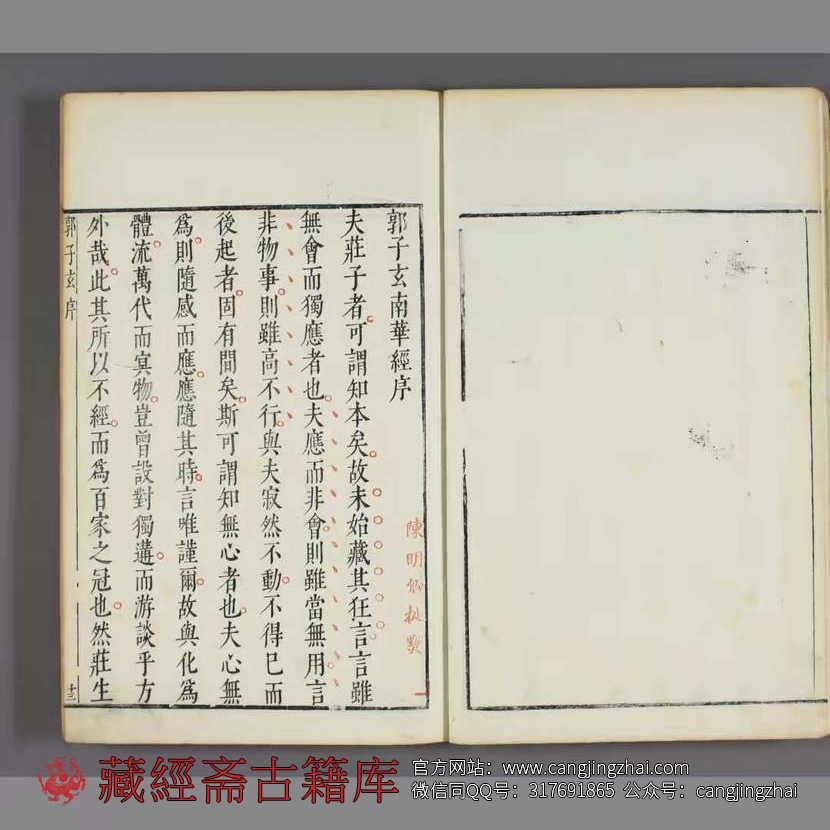 郭子玄南華經序
陳明卿批點
夫莊子者可謂知本矣故未始藏其狂言言雖
無會而獨應者也夫應而非會則雖當無用言
非物事則雖高不行與夫寂然不動不得已而
後起者固有間矣斯可謂知無心者也夫心無
爲則隨感而應應隨其時言唯謹爾故與化爲
體流萬代而冥物豈曾設對獨遘而游談乎方
外哉此其所以不經而爲百家之冠也然莊生
郭子玄序
十三
藏經斋古籍库
官方网站：www.cangjingzhai.com
微信同QQ号：317691865 公众号：cangjingzhai